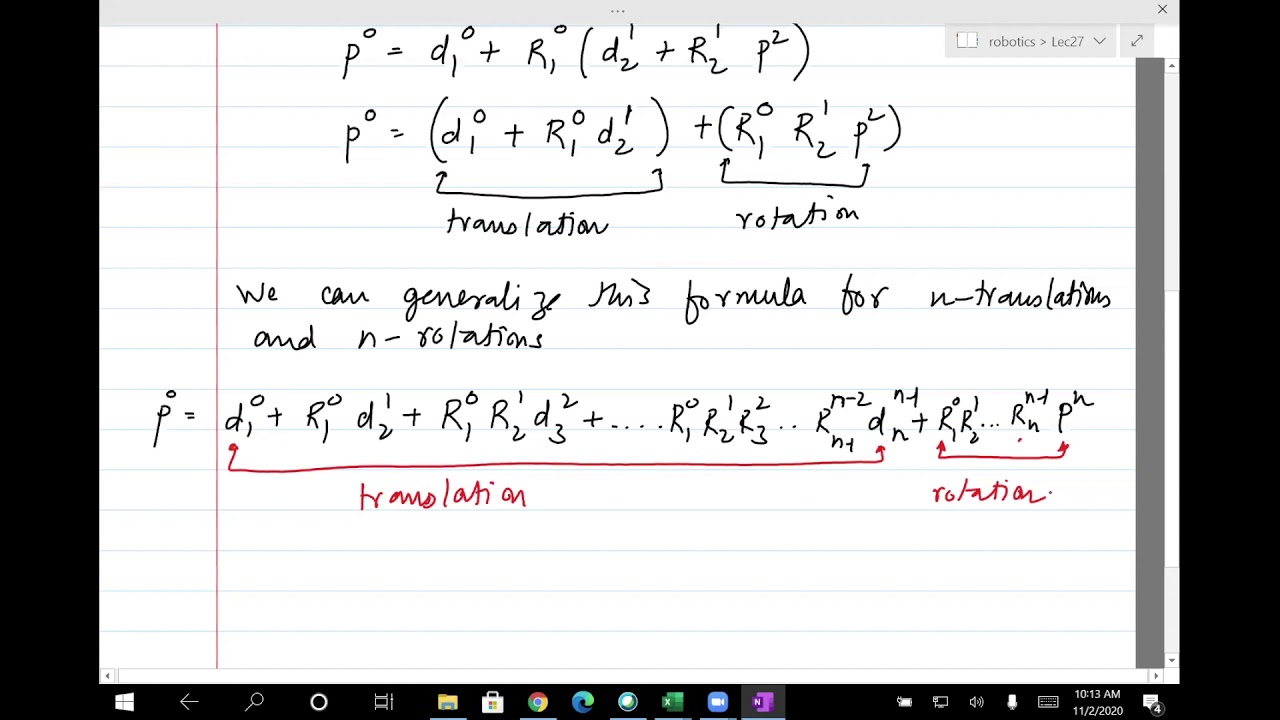 robotics > Lec27
p⁰ = d₁⁰ + R₁⁰ (d₂¹ + R₂¹ p²)
p⁰ = (d₁⁰ + R₁⁰ d₂¹) + (R₁⁰ R₂¹ p²)
translation rotation
We can generalize this formula for n-translations
and n-rotations
p⁰ = d₁⁰ + R₁⁰ d₂¹ + R₁⁰ R₂¹ d₃² + .... R₁⁰ R₂¹ R₃² .. Rₙ₋₁ⁿ⁻² dₙⁿ⁻¹ + R₁⁰ R₂¹ ... Rₙⁿ⁻¹ pⁿ
translation rotation.
10:13 AM
11/2/2020
4